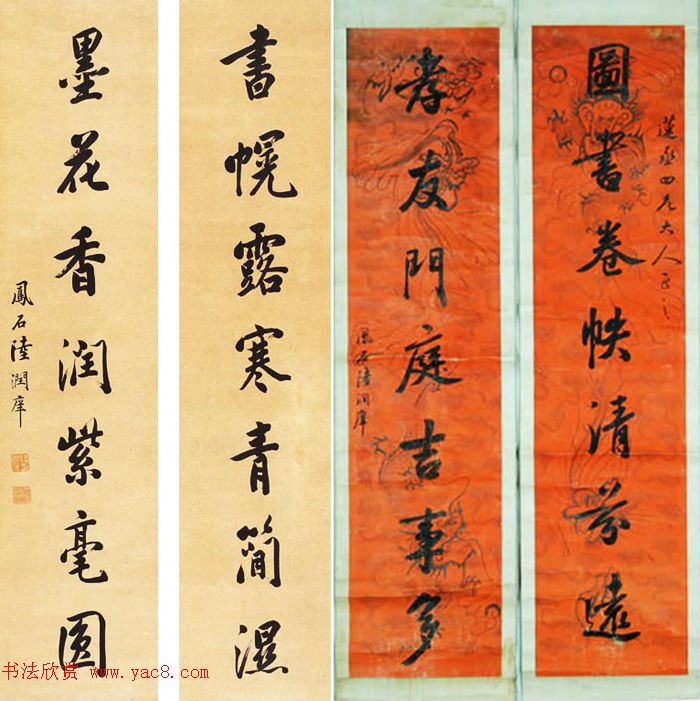 四兄大人正之
圖書卷帙清芬遠
孝友門庭吉事多
鳳石陸潤庠
書幌露寒青簡濕
墨花香潤紫毫圓
鳳石陸潤庠
书法欣赏 www.yac8.com